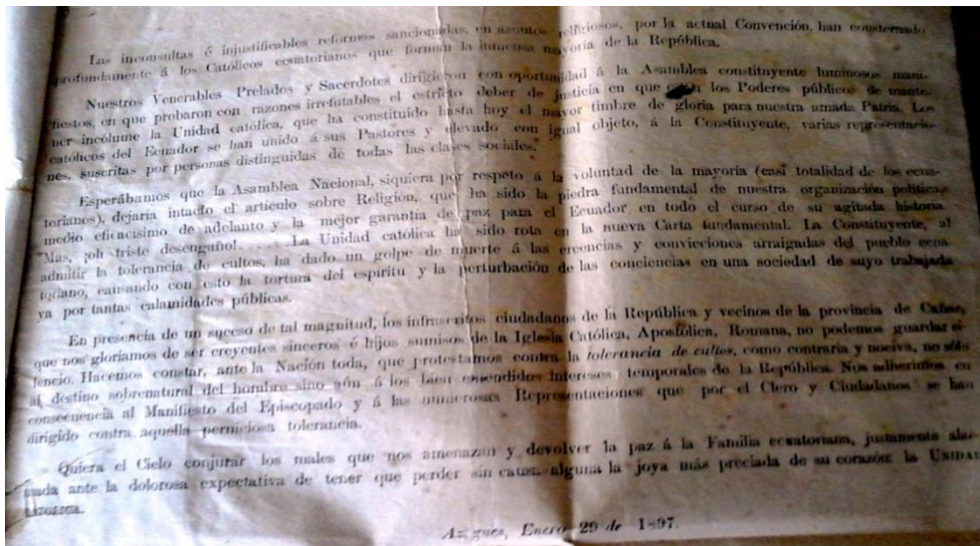 Las inconsultas é injustificables reformas sancionadas, en asuntos religiosos, por la actual Convención, han consternado
profundamente á los Católicos ecuatorianos que forman la inmensa mayoría de la República.
Nuestros Venerables Prelados y Sacerdotes dirigieron con oportunidad á la Asamblea constituyente luminosos mani-
fiestos, en que probaron con razones irrefutables el estricto deber de justicia en que los Poderes públicos de mante-
ner incólume la Unidad católica, que ha constituído hasta hoy el mayor timbre de gloria para nuestra amada Patria. Los
católicos del Ecuador se han unido á sus Pastores y elevado con igual objeto, á la Constituyente, varias representacio-
nes, suscritas por personas distinguidas de todas las clases sociales.
Esperábamos que la Asamblea Nacional, siquiera por respeto á la voluntad de la mayoría (casi totalidad de los ecua-
torianos), dejaría intacto el artículo sobre Religion, que ha sido la piedra fundamental de nuestra organización política,
medio eficacísimo de adelanto y la mejor garantía de paz para el Ecuador en todo el curso de su agitada historia.
Mas, ¡oh triste desengaño!...... La Unidad católica ha sido rota en la nueva Carta fundamental. La Constituyente, al
admitir la tolerancia de cultos, ha dado un golpe de muerte á las creencias y convicciones arraigadas del pueblo ecua-
toriano, causando con esto la tortura del espíritu y la perturbación de las conciencias en una sociedad de suyo trabajada
ya por tantas calamidades públicas.
En presencia de un suceso de tal magnitud, los infrascritos ciudadanos de la República y vecinos de la provincia de Cañar,
que nos gloriamos de ser creyentes sinceros é hijos sumisos de la Iglesia Católica, Apostólica, Romana, no podemos guardar si-
lencio. Hacemos constar, ante la Nación toda, que protestamos contra la tolerancia de cultos, como contraria y nociva, no sólo
al destino sobrenatural del hombre sino aún á los bien entendidos intereses temporales de la República. Nos adherimos en
consecuencia al Manifiesto del Episcopado y á las numerosas Representaciones que por el Clero y Ciudadanos se han
dirigido contra aquella perniciosa tolerancia.
Quiera el Cielo conjurar los males que nos amenazan y devolver la paz á la Familia ecuatoriana, justamente alar-
mada ante la dolorosa expectativa de tener que perder sin causa alguna la joya más preciada de su corazón: la UNIDAD
CATÓLICA.
Azogues, Enero 29 de 1897.